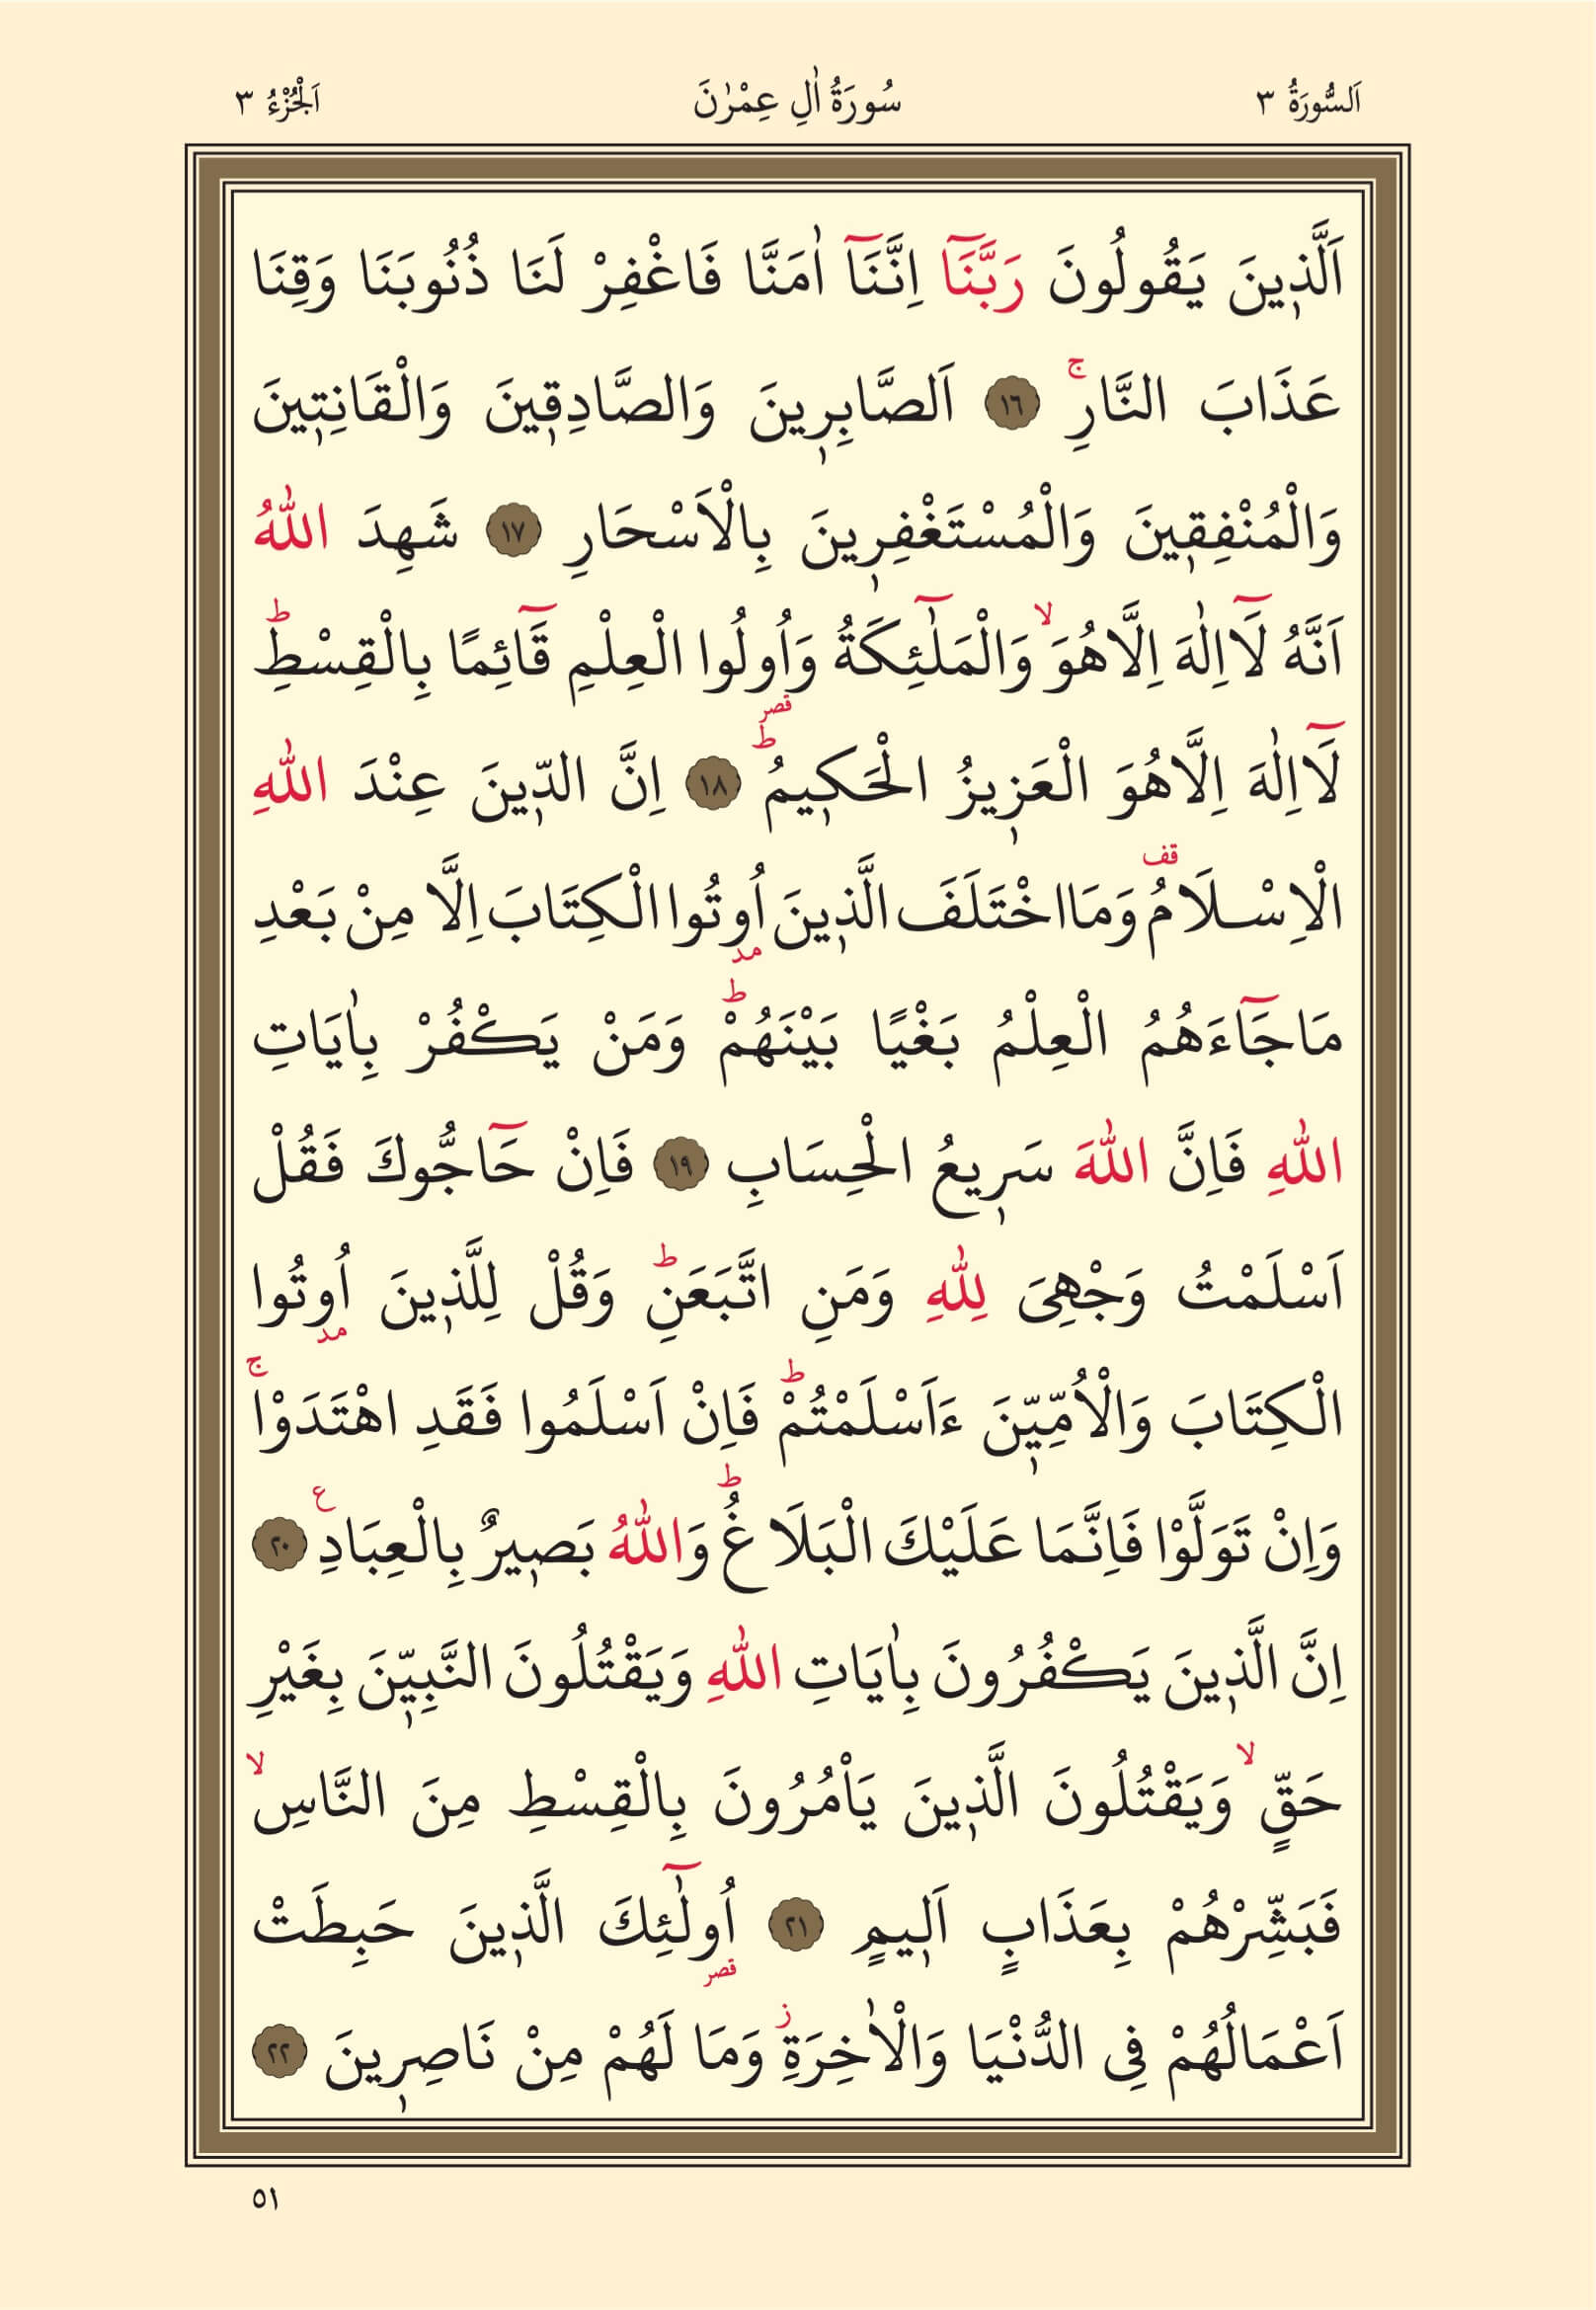 اَلسُّورَةُ ٣ سُورَةُ اٰلِ عِمْرٰنَ اَلْجُزْءُ ٣
اَلَّذ۪ينَ يَقُولُونَ رَبَّنَٓا اِنَّنَٓا اٰمَنَّا فَاغْفِرْ لَنَا ذُنُوبَنَا وَقِنَا
عَذَابَ النَّارِۚ ﴿١٦﴾ اَلصَّابِر۪ينَ وَالصَّادِق۪ينَ وَالْقَانِت۪ينَ
وَالْمُنْفِق۪ينَ وَالْمُسْتَغْفِر۪ينَ بِالْاَسْحَارِ ﴿١٧﴾ شَهِدَ اللّٰهُ
اَنَّهُ لَٓا اِلٰهَ اِلَّا هُوَۙ وَالْمَلٰٓئِكَةُ وَاُو۬لُوا الْعِلْمِ قَٓائِمًا بِالْقِسْطِۜ
لَٓا اِلٰهَ اِلَّا هُوَ الْعَز۪يزُ الْحَك۪يمُۜ ﴿١٨﴾ اِنَّ الدّ۪ينَ عِنْدَ اللّٰهِ
الْاِسْلَامُ۠ وَمَا اخْتَلَفَ الَّذ۪ينَ اُو۫تُوا الْكِتَابَ اِلَّا مِنْ بَعْدِ
مَا جَٓاءَهُمُ الْعِلْمُ بَغْيًا بَيْنَهُمْۜ وَمَنْ يَكْفُرْ بِاٰيَاتِ
اللّٰهِ فَاِنَّ اللّٰهَ سَر۪يعُ الْحِسَابِ ﴿١٩﴾ فَاِنْ حَٓاجُّوكَ فَقُلْ
اَسْلَمْتُ وَجْهِيَ لِلّٰهِ وَمَنِ اتَّبَعَنِۜ وَقُلْ لِلَّذ۪ينَ اُو۫تُوا
الْكِتَابَ وَالْاُمِّيّ۪نَ ءَاَسْلَمْتُمْۜ فَاِنْ اَسْلَمُوا فَقَدِ اهْتَدَوْاۚ
وَاِنْ تَوَلَّوْا فَاِنَّمَا عَلَيْكَ الْبَلَاغُۜ وَاللّٰهُ بَص۪يرٌ بِالْعِبَادِ۟ ﴿٢٠﴾
اِنَّ الَّذ۪ينَ يَكْفُرُونَ بِاٰيَاتِ اللّٰهِ وَيَقْتُلُونَ النَّبِيّ۪نَ بِغَيْرِ
حَقٍّۙ وَيَقْتُلُونَ الَّذ۪ينَ يَاْمُرُونَ بِالْقِسْطِ مِنَ النَّاسِۙ
فَبَشِّرْهُمْ بِعَذَابٍ اَل۪يمٍ ﴿٢١﴾ اُو۬لٰٓئِكَ الَّذ۪ينَ حَبِطَتْ
اَعْمَالُهُمْ فِي الدُّنْيَا وَالْاٰخِرَةِۘ وَمَا لَهُمْ مِنْ نَاصِر۪ينَ ﴿٢٢﴾
٥١